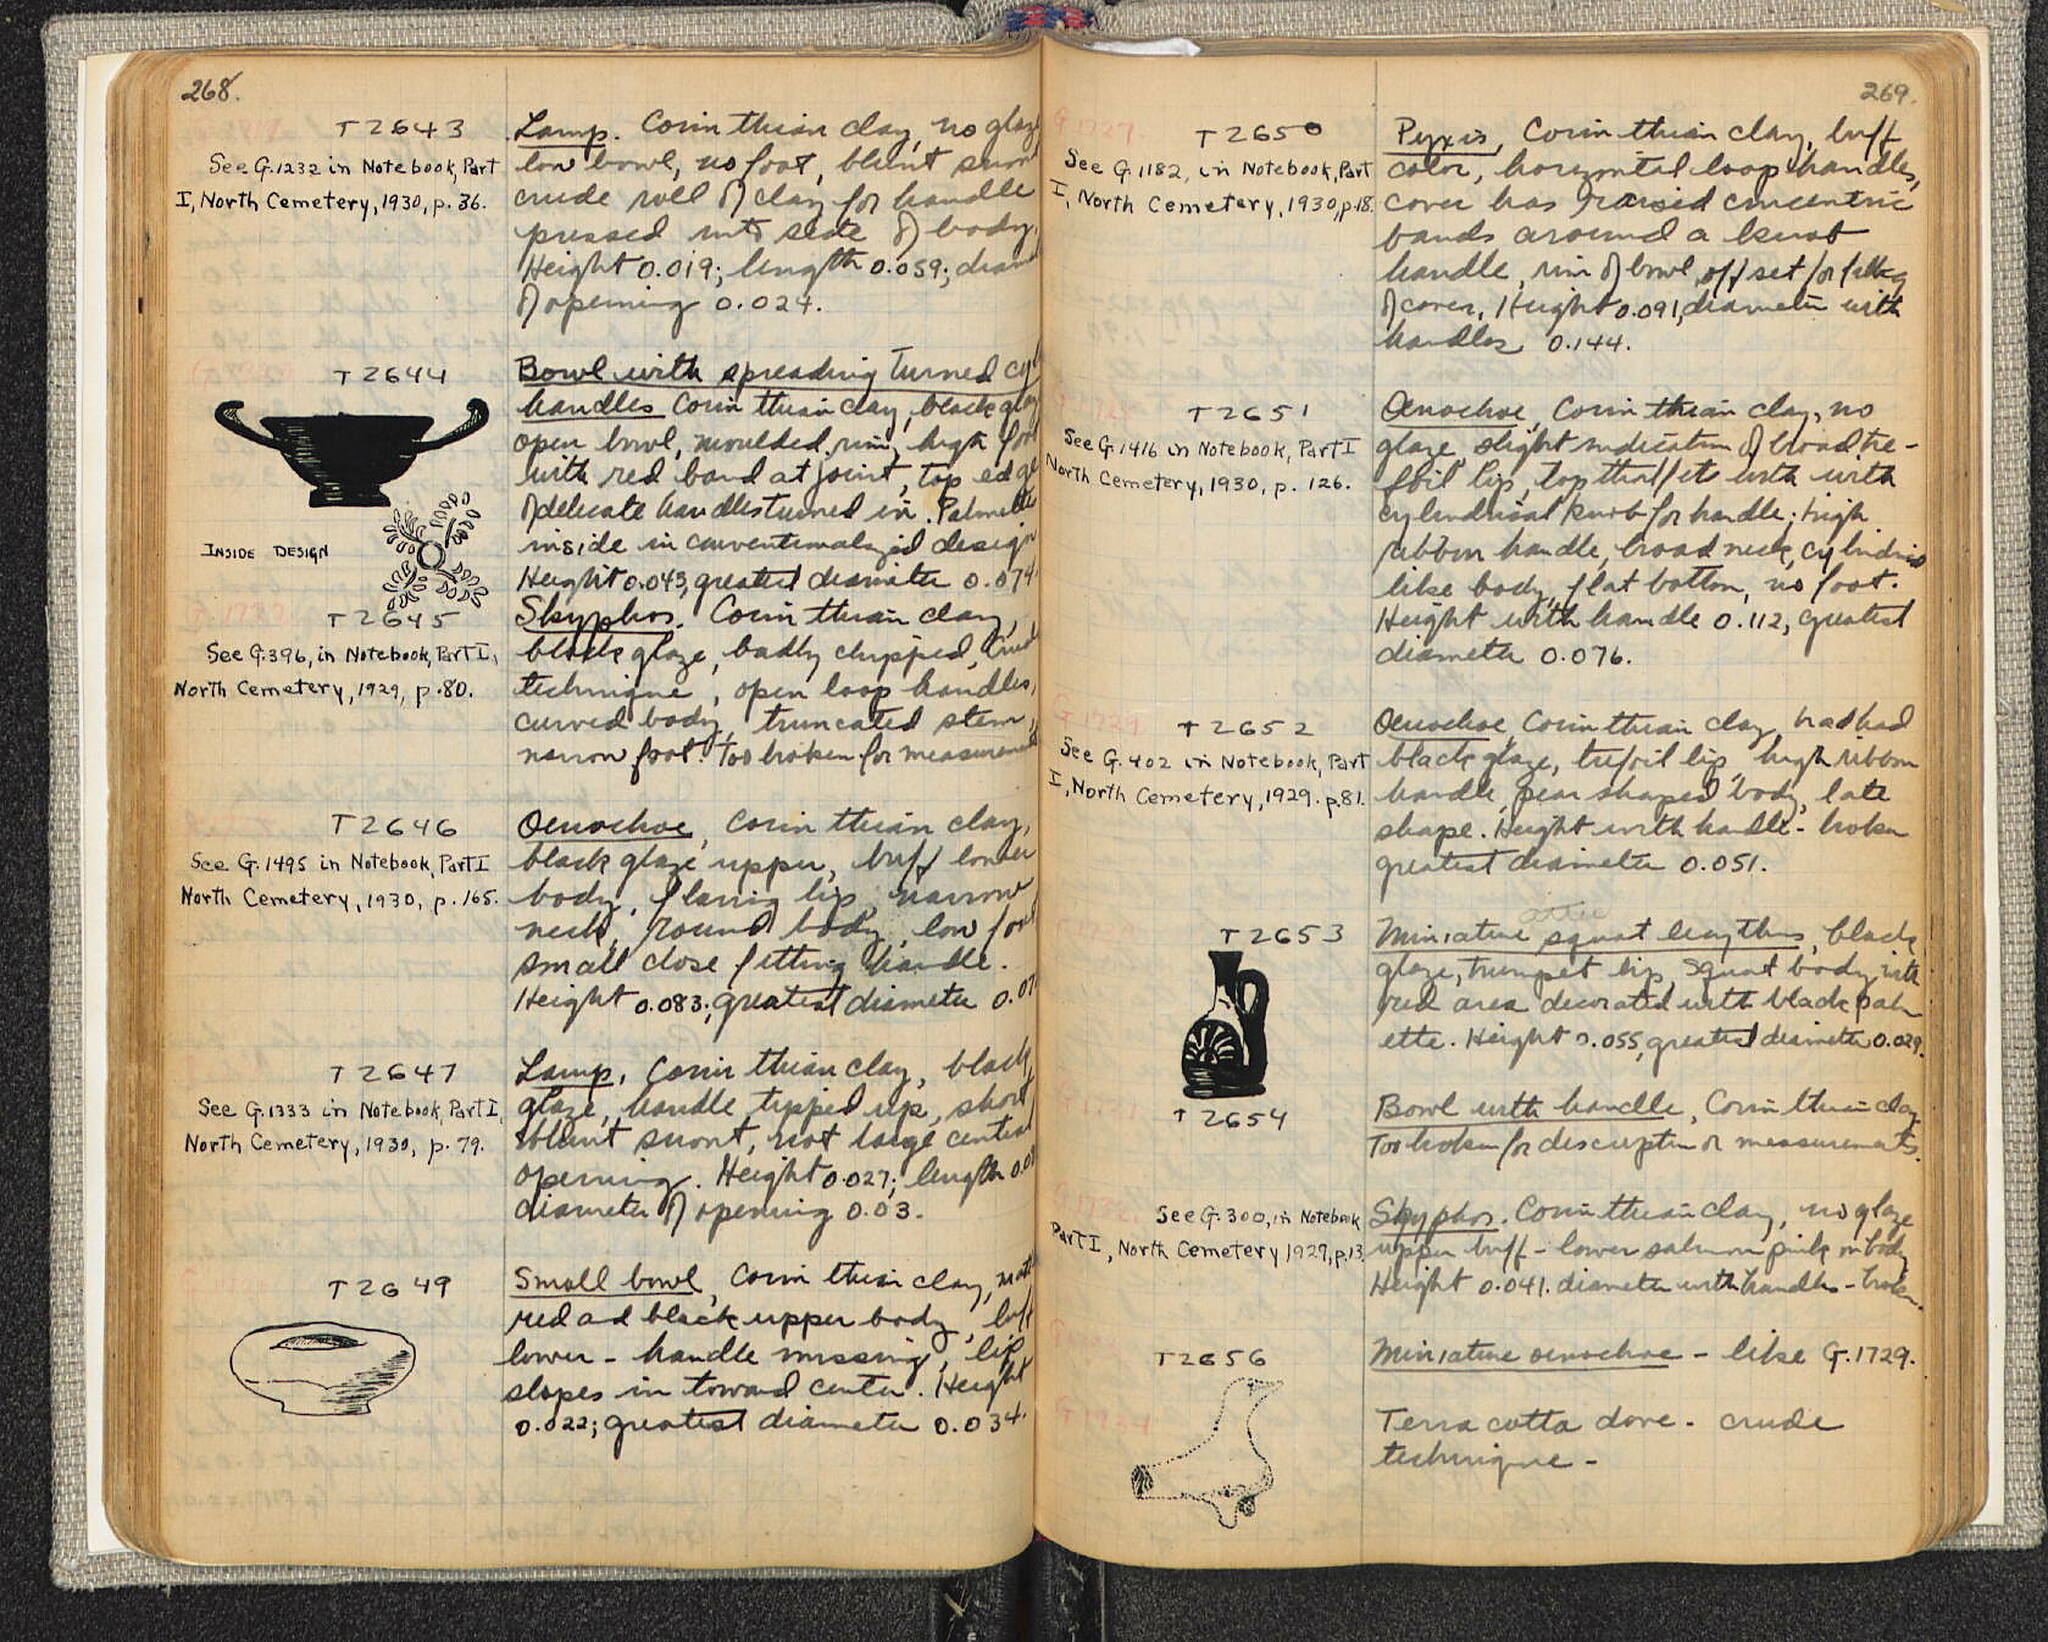 268.
T 2643
See G.1232 in Notebook, Part
I, North Cemetery, 1930, p. 36.
Lamp. Corinthian clay, no glaze
low bowl, no foot, blunt
crude roll of clay for handle
pressed into side of body.
Height 0.019; length 0.059;
of opening 0.024.
T 2644
INSIDE DESIGN
Bowl with spreading turned
handles Corinthian clay, black
open bowl, moulded rim, high
with red band at joint, top edge
of delicate handles turned in. Palmette
inside in conventionalized design
Height 0.043, greatest diameter 0.074.
T 2645
See G.396, in Notebook, Part I,
North Cemetery, 1929, p. 80.
Skyphos. Corinthian clay,
black glaze, badly chipped,
technique, open loop handles,
curved body, truncated stem,
narrow foot. Too broken for measurements
T 2646
See G.1495 in Notebook, Part I
North Cemetery, 1930, p. 165.
Oenochoe, Corinthian clay,
black glaze upper, buff lower
body, flaring lip, narrow
neck, round body, low foot
small close fitting handle.
Height 0.083; greatest diameter
T 2647
See G.1333 in Notebook, Part I,
North Cemetery, 1930, p. 79.
Lamp, Corinthian clay, black
glaze, handle tipped up, short
blunt snout, not large central
opening. Height 0.027; length
diameter of opening 0.03.
T 2649
Small bowl, Corinthian clay,
red and black upper body, buff
lower - handle missing, lip
slopes in toward center. Height
0.022; greatest diameter 0.034.
269.
G 1727
T 2650
See G.1182, in Notebook, Part
I, North Cemetery, 1930, p. 18.
Pyxis, Corinthian clay, buff
color, horizontal loop handles,
cover has raised concentric
bands around a knob
handle, rim of bowl offset for
of cover. Height 0.091, diameter with
handles 0.144.
T 2651
See G.1416 in Notebook, Part I
North Cemetery, 1930, p. 126.
Oenochoe, Corinthian clay, no
glaze, slight indication of broad tre-
foil lip, top that fits with with
cylindrical knob for handle; high
ribbon handle, broad neck,
like body, flat bottom, no foot.
Height with handle 0.112, greatest
diameter 0.076.
G 1729
T 2652
See G.402 in Notebook, Part
I, North Cemetery, 1929. p. 81.
Oenochoe Corinthian clay had had
black glaze, trefoil lip, high ribbon
handle, pear shaped body, late
shape. Height with handle - broken
greatest diameter 0.051.
T 2653
attic
Miniature squat lecythus, black
glaze, trumpet lip, squat body with
red area decorated with black palm
ette. Height 0.055, greatest diameter 0.029.
T 2654
Bowl with handle, Corinthian clay
Too broken for description or measurements.
See G.300, in Notebook
Part I, North Cemetery 1929, p. 13
Skyphos. Corinthian clay, no glaze
upper buff - lower salmon pink on body
Height 0.041. diameter with handles - broken.
T 2656
Miniature oenochoe - like G.1729.
Terra cotta dove - crude
technique -